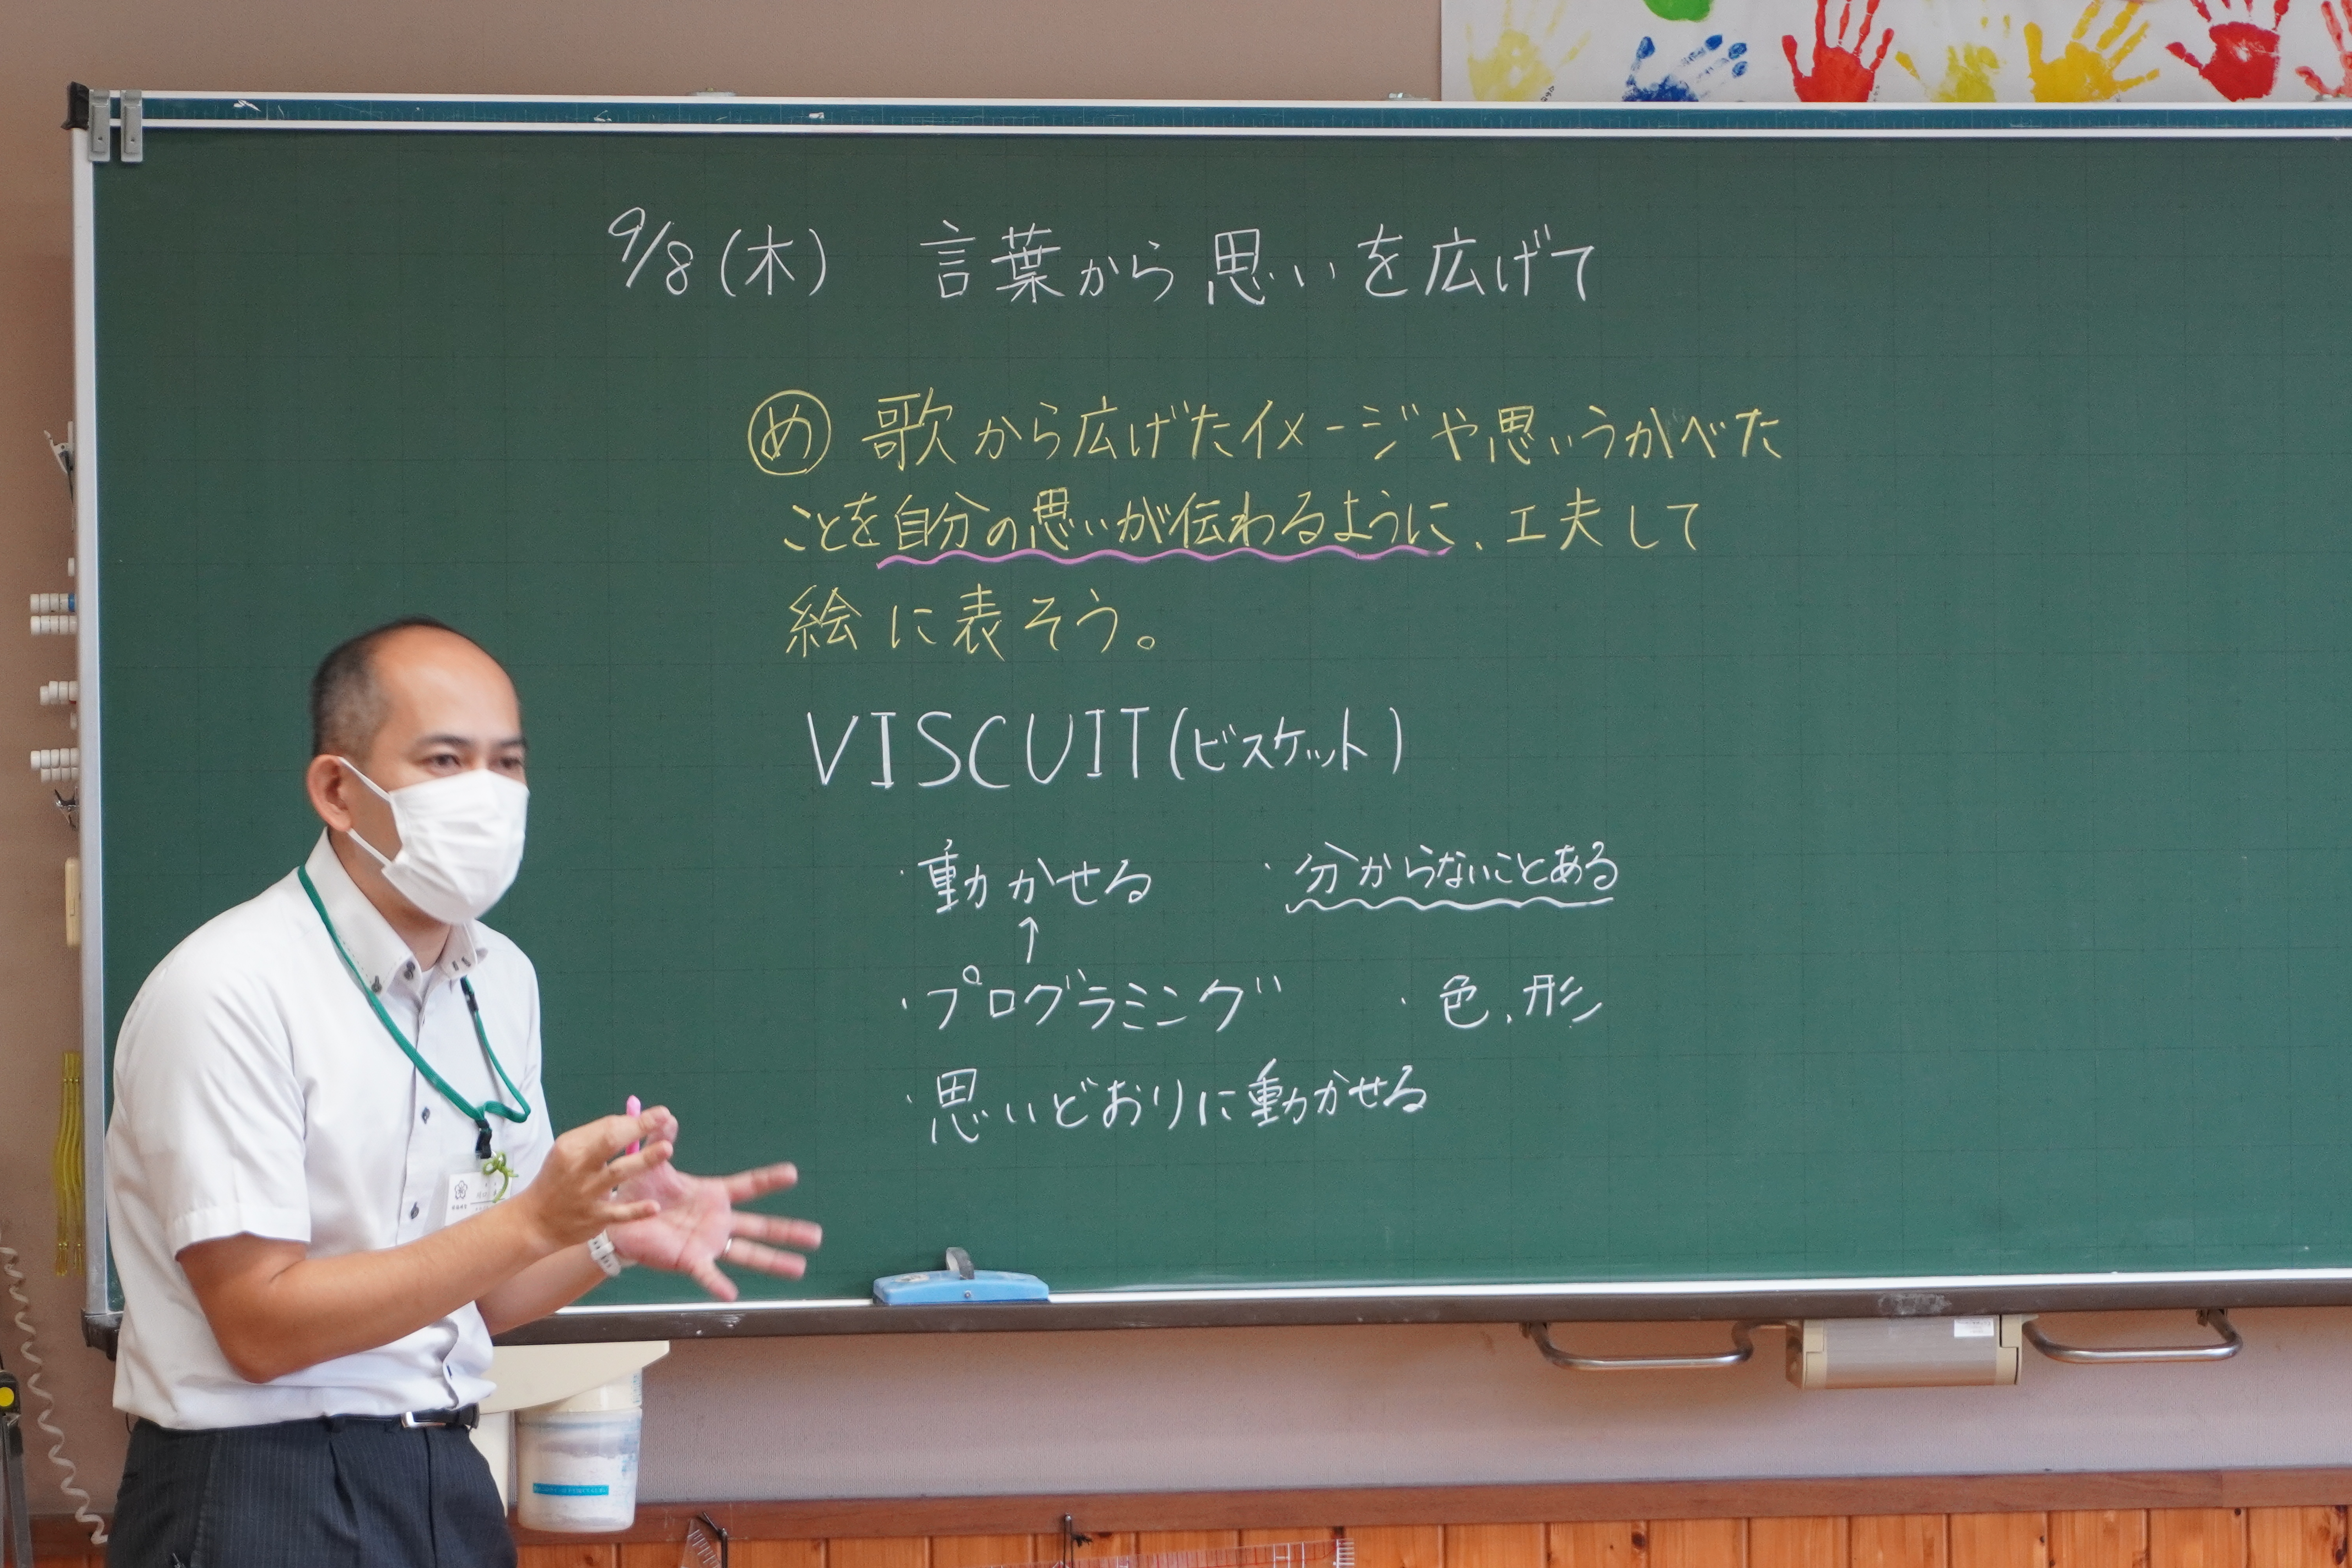 9/8(木) 言葉から思いを広げて
め 歌から広げたイメージや思いうかべた
ことを自分の思いが伝わるように、工夫して
絵に表そう。
VISCUIT(ビスケット)
・動かせる ・分からないことある
↑
・プログラミング ・色、形
・思いどおりに動かせる